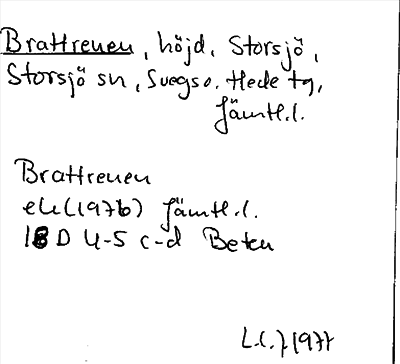 Brattreuen, höjd, Storsjö,
Storsjö sn, Svegs o. Hede tg,
Jämtl.l.
Brattreuen
ek (1976) Jämtl.l.
18 D 4-5 c-d Beten
1977